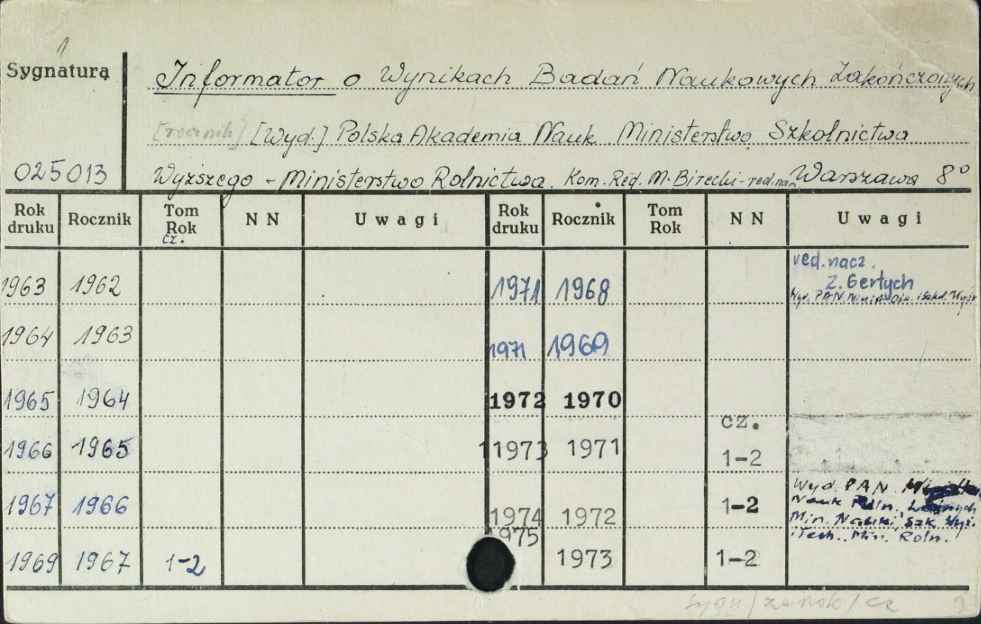 Sygnatura
Informator o Wynikach Badań Naukowych Zakończonych
[rocznik] [Wyd.] Polska Akademia Nauk Ministerstwo Szkolnictwa
025013 Wyższego - Ministerstwo Rolnictwa. Kom. Red. M. Birecki - red. nacz. Warszawa 8°
Rok druku Rocznik Tom Rok cz. NN Uwagi Rok druku Rocznik Tom Rok NN Uwagi
1963 1962 1971 1968 red. nacz. Z. Gertych
1964 1963 1971 1969
1965 1964 1972 1970
1966 1965 1973 1971 cz. 1-2
1967 1966 1974 1972 1-2 Wyd. PAN
Nauk Roln. Leśnych
Min. Nauki, Szk. Wyż.
i Tech. Min. Roln.
1969 1967 1-2 1975 1973 1-2